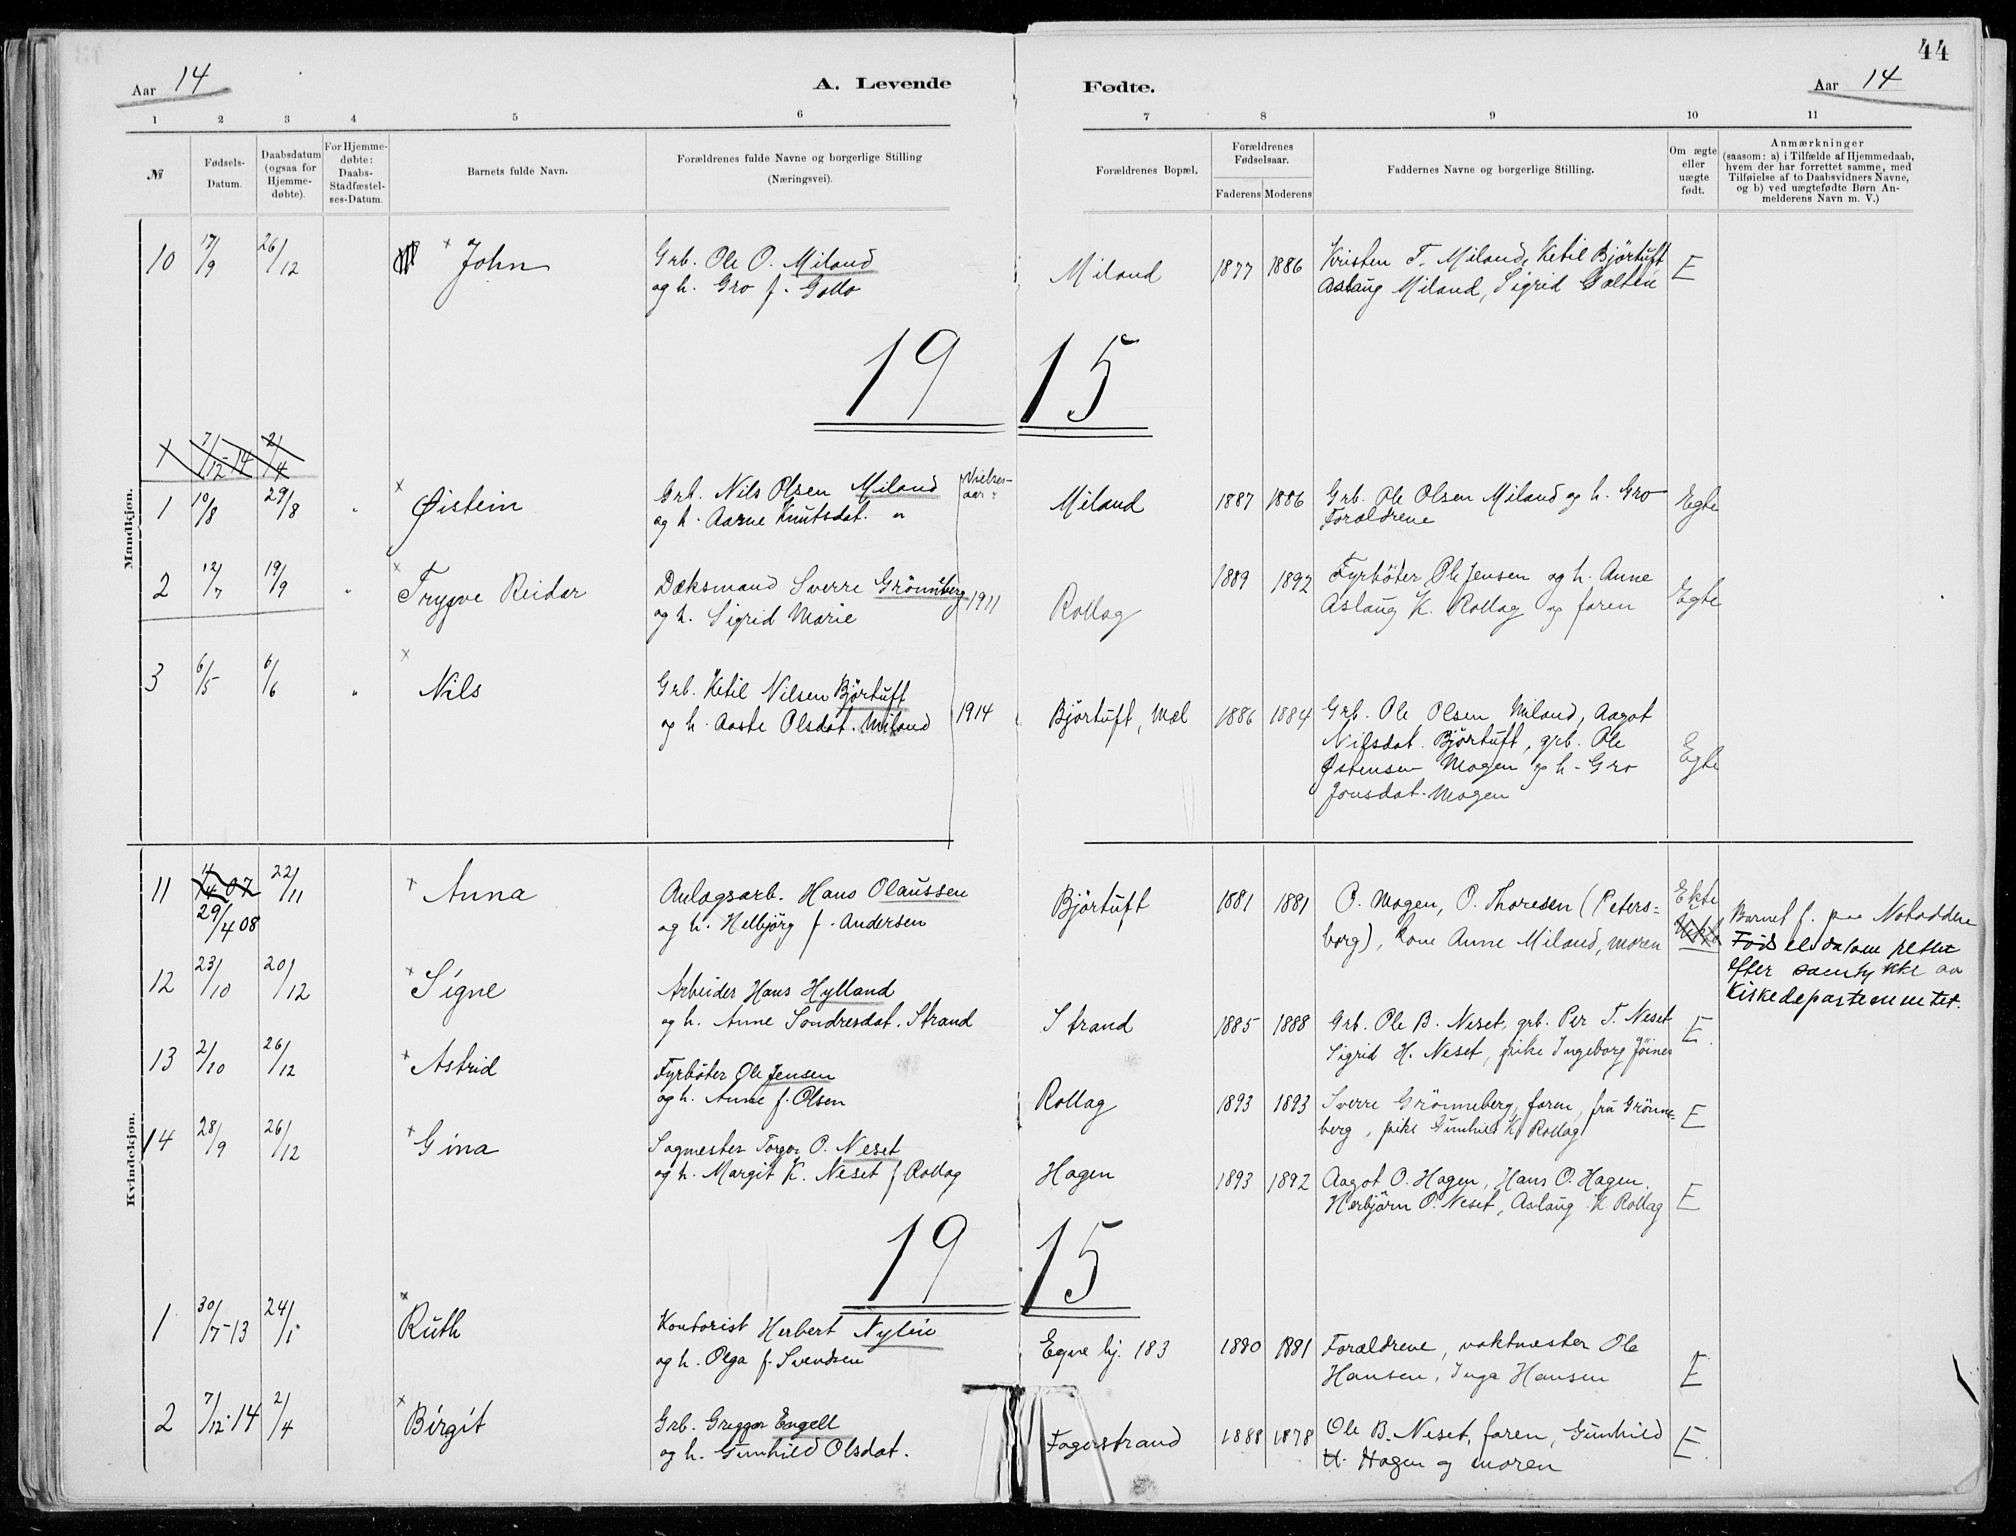 44
Aar 14
A. Levende
Fødte.
Aar 14
1 2 3 4 5 6 7 8 9 10 11
№
Fødsels-
Datum.
Daabsdatum
(ogsaa for
Hjemme-
døbte).
For Hjemme-
døbte:
Daabs-
Stadfæstel-
ses-Datum.
Barnets fulde Navn.
Forældrenes fulde Navne og borgerlige Stilling
(Næringsvei).
Forældrenes Bopæl.
Forældrenes
Fødselsaar.
Faderens Moderens
Faddernes Navne og borgerlige Stilling.
Om ægte
eller
uægte
født.
Anmærkninger
(saasom: a) i Tilfælde af Hjemmedaab,
hvem der har forrettet samme, med
Tilføielse af to Daabsvidners Navne,
og b) ved uægtefødte Børn An-
melderens Navn m. V.)
Mandkjøn.
10 17/9 26/12 John Grb. Ole O. Miland Miland 1877 1886 Kristen T. Miland, Ketil Björtuft E
og h. Gro f. Aslaug Miland, Sigrid
19 15
7/12-14 2/4
1 10/8 29/8 " Øistein Grb. Nils Olsen Miland Miland 1887 1886 Grb. Ole Olsen Miland og h. Gro Egte
og h. Aarne Knutsdat. " Forældrene
2 12/7 19/9 " Trygve Reidar Dæksmand Sverre Grönneberg 1911 Rollag 1889 1892 Fyrbøter Ole Jensen og h. Anne Egte
og h. Sigrid Marie Aslaug K. Rollag og faren
3 6/5 6/6 " Nils Grb. Ketil Nilsen Björtuft
og h. Aaste Olsdat. Miland 1914 Björtuft, Mæl 1886 1884 Grb. Ole Olsen Miland, Aagot
Nilsdat. Björtuft, grb. Ole
Østensen Mogen og h. Gro Egte
Jonsdat. Mogen
Kvindekjøn.
11 4/4 07 22/11 Anna Anlægsarb. Hans Olaussen Björtuft 1881 1881 O. Mogen, O. Thoresen (Peters= Ekte
29/4 08 og h. Helbjörg f. Andersen borg), Kone Anne Miland, moren
Barnet f. paa Notodden
Fødselsdatoen rettet
efter samtykke
Kirkedepartementet.
12 23/10 20/12 Signe Arbeider Hans Hylland
og h. Anne Sondresdat. Strand Strand 1885 1888 Grb. Ole B. Neset, grb. Per T. Neset E.
Sigrid H. Neset, pike Ingeborg
13 2/10 26/12 Astrid Fyrbøter Ole Jensen
og h. Anne f. Olsen Rollag 1893 1893 Sverre Grönneberg, faren, fru Grönne- E
berg, pike Gunhild K. Rollag
14 28/9 26/12 Gina Sagmester Torger O. Neset
og h. Margit K. Neset f. Rollag Hagen 1893 1892 Aagot O. Hagen, Hans O. Hagen, E
Herbjörn O. Neset, Aslaug K. Rollag
19 15
1 30/7-13 24/1 Ruth Kontorist Herbert Nylén Egne hj. 183 1880 1881 Forældrene, vaktmester Ole E
og h. Olga f. Svendsen Hansen, Inga Hansen
2 7/12-14 2/4 Birgit Grb. Gregger Engell Fagerstrand 1888 1878 Ole B. Neset, faren, Gunhild E.
og h. Gunhild Olsdat. H. Hagen og moren